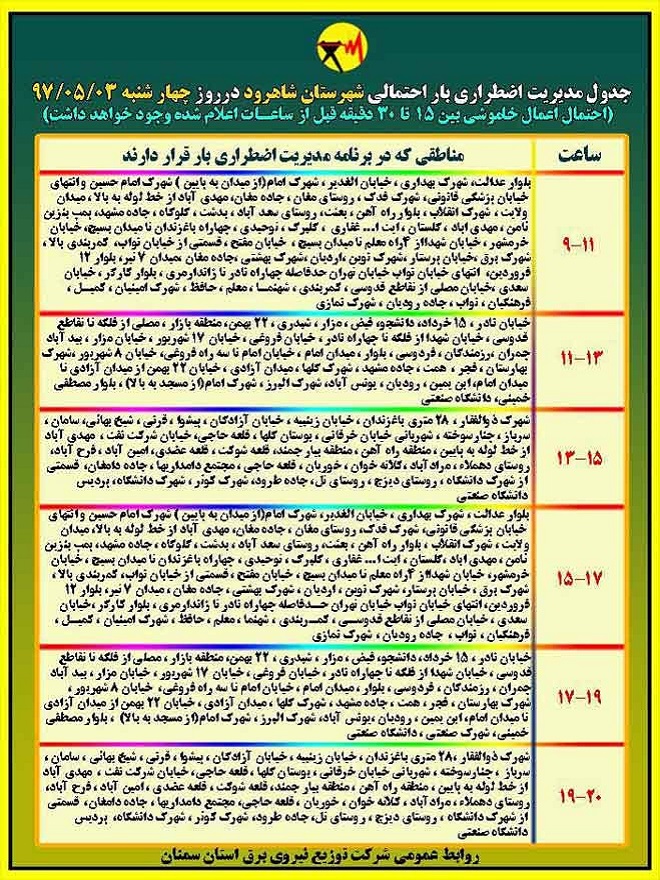 جدول مدیریت اضطراری بار احتمالی شهرستان شاهرود درروز چهار شنبه ۹۷/۰۵/۰۳
(احتمال اعمال خاموشی بین ۱۵ تا ۳۰ دقیقه قبل از ساعات اعلام شده وجود خواهد داشت)
ساعت
مناطقی که در برنامه مدیریت اضطراری بار قرار دارند
۹-۱۱
بلوار عدالت، شهرک بهداری ، خیابان الغدیر ، شهرک امام(از میدان به پایین ) شهرک امام حسین و انتهای
خیابان پزشکی قانونی، شهرک فدک ، روستای مغان ، جاده مغان، مهدی آباد از خط لوله به بالا، میدان
ولایت ، شهرک انقلاب ، بلوار راه آهن ، بعثت، روستای سعد آباد ، بدشت ، کلوکاه ، جاده مشهد، پمپ بنزین
تامن ، مهدی اباد ، گلستان ، ایت ا... غفاری ، گلبرگ ، توحیدی ، چهاراه باغزندان تا میدان بسیج، خیابان
خرمشهر ، خیابان شهدااز ۴راه معلم تا میدان بسیج ، خیابان مفتح ، قسمتی از خیابان نواب، کمربندی بالا ،
شهرک برق ،خیابان پرستار ،شهرک نوین ،اردیان ،شهرک بهشتی ،جاده مغان ،میدان ۷ تیر، بلوار ۱۲
فروردین، انتهای خیابان نواب خیابان تهران حدفاصله چهاراه نادر تا ژاندارمری ، بلوار کارگر ، خیابان
سعدی ،خیابان مصلی از تقاطع قدوسی ، کمربندی ، شهنما ، معلم ، حافظ ، شهرک امینیان ، کمیل ،
فرهنگیان ، نواب ، جاده رودیان ، شهرک نمازی
۱۱-۱۳
خیابان نادر ، ۱۵ خرداد، دانشجو، فیض ، مزار ، شبدری ، ۲۲ بهمن، منطقه بازار ، مصلی از فلکه تا تقاطع
قدوسی ، خیابان شهدا از فلکه تا چهاراه نادر ، خیابان فروغی ، خیابان ۱۷ شهریور ، خیابان مزار ، بید آباد
چمران ،رزمندگان ، فردوسی ، بلوار ، میدان امام ، خیابان امام تا سه راه فروغی، خیابان ۸ شهریور ،شهرک
بهارستان ، فجر ، همت ، جاده مشهد ، شهرک گلها ، میدان آزادی ، خیابان ۲۲ بهمن از میدان آزادی تا
میدان امام، ابن یمین ، رودیان ، یونس آباد، شهرک البرز ، شهرک امام(از مسجد به بالا) ، بلوار مصطفی
خمینی، دانشگاه صنعتی
۱۳-۱۵
شهرک ذوالفقار ، ۲۸ متری باغزندان ، خیابان زینبیه ، خیابان آزادگان ، پیشوا ، قرنی ، شیخ بهائی، سامان ،
سرباز ، چنارسوخته ، شهربانی خیابان خرقانی ، بوستان گلها ، قلعه حاجی، خیابان شرکت نفت ، مهدی آباد
از خط لوله به پایین ، منطقه راه آهن ، منطقه بیار جمند، قلعه شوکت ، قلعه عضدی ، امین آباد ، فرح آباد،
روستای دهملاء ، مراد آباد ، کلاته خوان ، خوریان ، قلعه حاجی ، مجتمع دامداریها ، جاده دامغان، قسمتی
از شهرک دانشگاه ، روستای دیزج ، روستای تل، جاده طرود، شهرک کوثر ، شهرک دانشگاه، پردیس
دانشگاه صنعتی
۱۵-۱۷
بلوار عدالت ، شهرک بهداری ، خیابان الغدیر، شهرک امام(از میدان به پایین ) شهرک امام حسین و انتهای
خیابان پزشکی قانونی، شهرک فدک، روستای مغان ، جاده مغان، مهدی آباد از خط لوله به بالا، میدان
ولایت ، شهرک انقلاب ، بلوار راه آهن ، بعثت، روستای سعد آباد ، بدشت ، کلوکاه ، جاده مشهد، پمپ بنزین
تامن ، مهدی اباد، گلستان ، ایت ا... غفاری ، گلبرگ ، توحیدی ، چهاراه باغزندان تا میدان بسیج ، خیابان
خرمشهر، خیابان شهدااز ۴راه معلم تا میدان بسیج ، خیابان مفتح ، قسمتی از خیابان نواب، کمربندی بالا ،
شهرک برق ، خیابان پرستار، شهرک نوین ، اردیان ، شهرک بهشتی ، جاده مغان ، میدان ۷ تیر، بلوار ۱۲
فروردین، انتهای خیابان نواب خیابان تهران حدفاصله چهاراه نادر تا ژاندارمری ، بلوار کارگر ،خیابان
سعدی ، خیابان مصلی از تقاطع قدوسی ، کمربندی ، شهنما ، معلم ، حافظ ، شهرک امینیان ، کمیل ،
فرهنگیان ، نواب ، جاده رودیان ، شهرک نمازی
۱۷-۱۹
خیابان نادر ، ۱۵ خرداد، دانشجو، فیض ، مزار ، شبدری ، ۲۲ بهمن، منطقه بازار ، مصلی از فلکه تا تقاطع
قدوسی ، خیابان شهدا از فلکه تا چهاراه نادر ، خیابان فروغی ، خیابان ۱۷ شهریور، خیابان مزار ، بید آباد
چمران ، رزمندگان ، فردوسی ، بلوار ، میدان امام ، خیابان امام تا سه راه فروغی، خیابان ۸ شهریور ،
شهرک بهارستان ، فجر ، همت ، جاده مشهد ، شهرک گلها ، میدان آزادی ، خیابان ۲۲ بهمن از میدان آزادی
تا میدان امام، ابن یمین ، رودیان ،یونس آباد، شهرک البرز ، شهرک امام(از مسجد به بالا) ، بلوار مصطفی
خمینی، شهرک صنعتی ، دانشگاه صنعتی
۱۹-۲۰
شهرک ذوالفقار ،۲۸ متری باغزندان ، خیابان زینبیه ، خیابان آزادگان ، پیشوا ، قرنی ، شیخ بهائی ، سامان ،
سرباز ، چنارسوخته ، شهربانی خیابان خرقانی ، بوستان گلها ، قلعه حاجی، خیابان شرکت نفت ، مهدی آباد
از خط لوله به پایین ، منطقه راه آهن ، منطقه بیار جمند، قلعه شوکت ، قلعه عضدی ، امین آباد ، فرح آباد،
روستای دهملاء ، مراد آباد ، کلاته خوان ، خوریان ، قلعه حاجی، مجتمع دامداریها ، جاده دامغان، قسمتی
از شهرک دانشگاه ، روستای دیزج ، روستای تل، جاده طرود، شهرک کوثر ، شهرک دانشگاه، پردیس
دانشگاه صنعتی
روابط عمومی شرکت توزیع نیروی برق استان سمنان